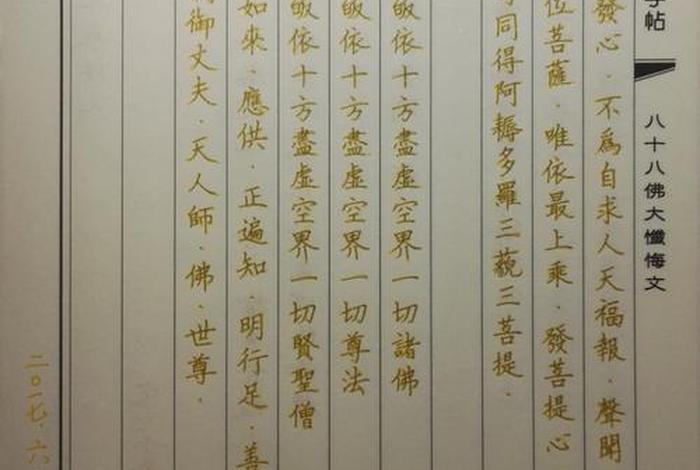 字帖
八十八佛大懺悔文
發心．不爲自求人天福報．聲聞
位菩薩．唯依最上乘．發菩提心
同得阿耨多羅三藐三菩提．
皈依十方盡虛空界一切諸佛
皈依十方盡虛空界一切尊法
皈依十方盡虛空界一切賢聖僧
如來．應供．正遍知．明行足．善
御丈夫．天人師．佛．世尊．
二〇一七．六